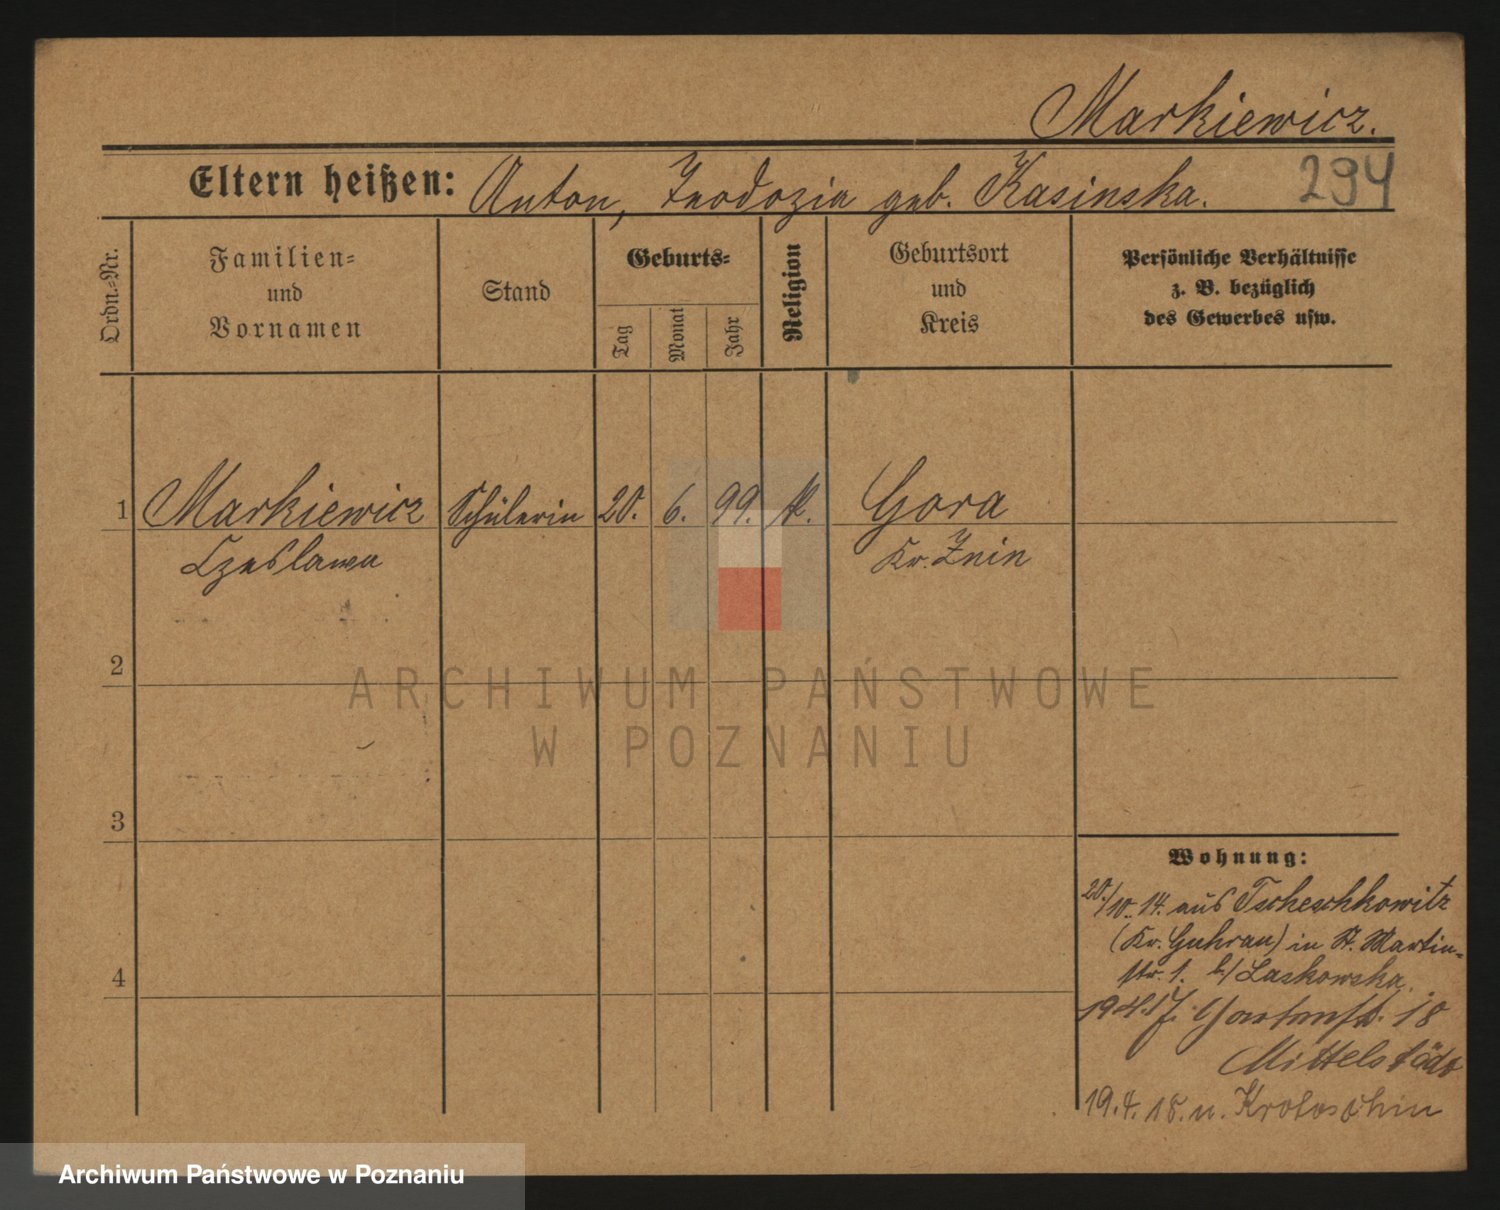 Markiewicz.
Eltern heißen: Anton, Teodozia geb. Kasinska. 294
Ordn.-Nr.
Familien-
und
Vornamen
Stand
Geburts-
Tag
Monat
Jahr
Religion
Geburtsort
und
Kreis
Persönliche Verhältnisse
z. B. bezüglich
des Gewerbes usw.
1 Markiewicz Schülerin 20. 6. 99. k. Gora
Czeslawa Kr. Znin
2
3
4
Wohnung:
20./10. 14. aus Tscheschkowitz
(Kr. Guhrau) in St. Martin-
str. 1. b/ Laskowska.
19 4. 17. Gartenstr. 18
Mittelstädt
19. 4. 18. n. Krotoschin
ARCHIWUM PAŃSTWOWE
W POZNANIU
Archiwum Państwowe w Poznaniu